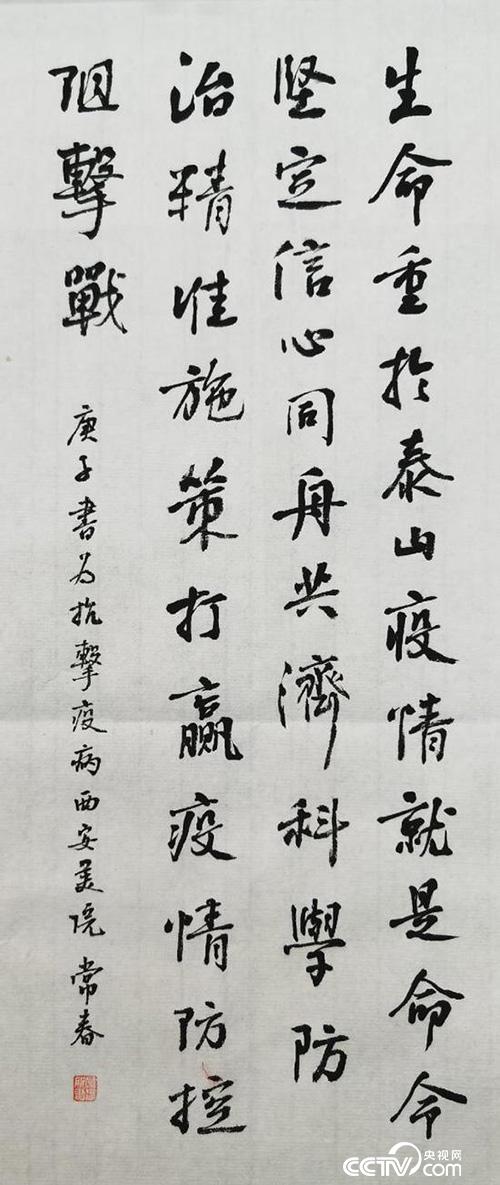 生命重於泰山疫情就是命令
堅定信心同舟共濟科學防
治精准施策打贏疫情防控
阻擊戰
庚子書为抗擊疫病西安美院常春
央视网
CCTV.com